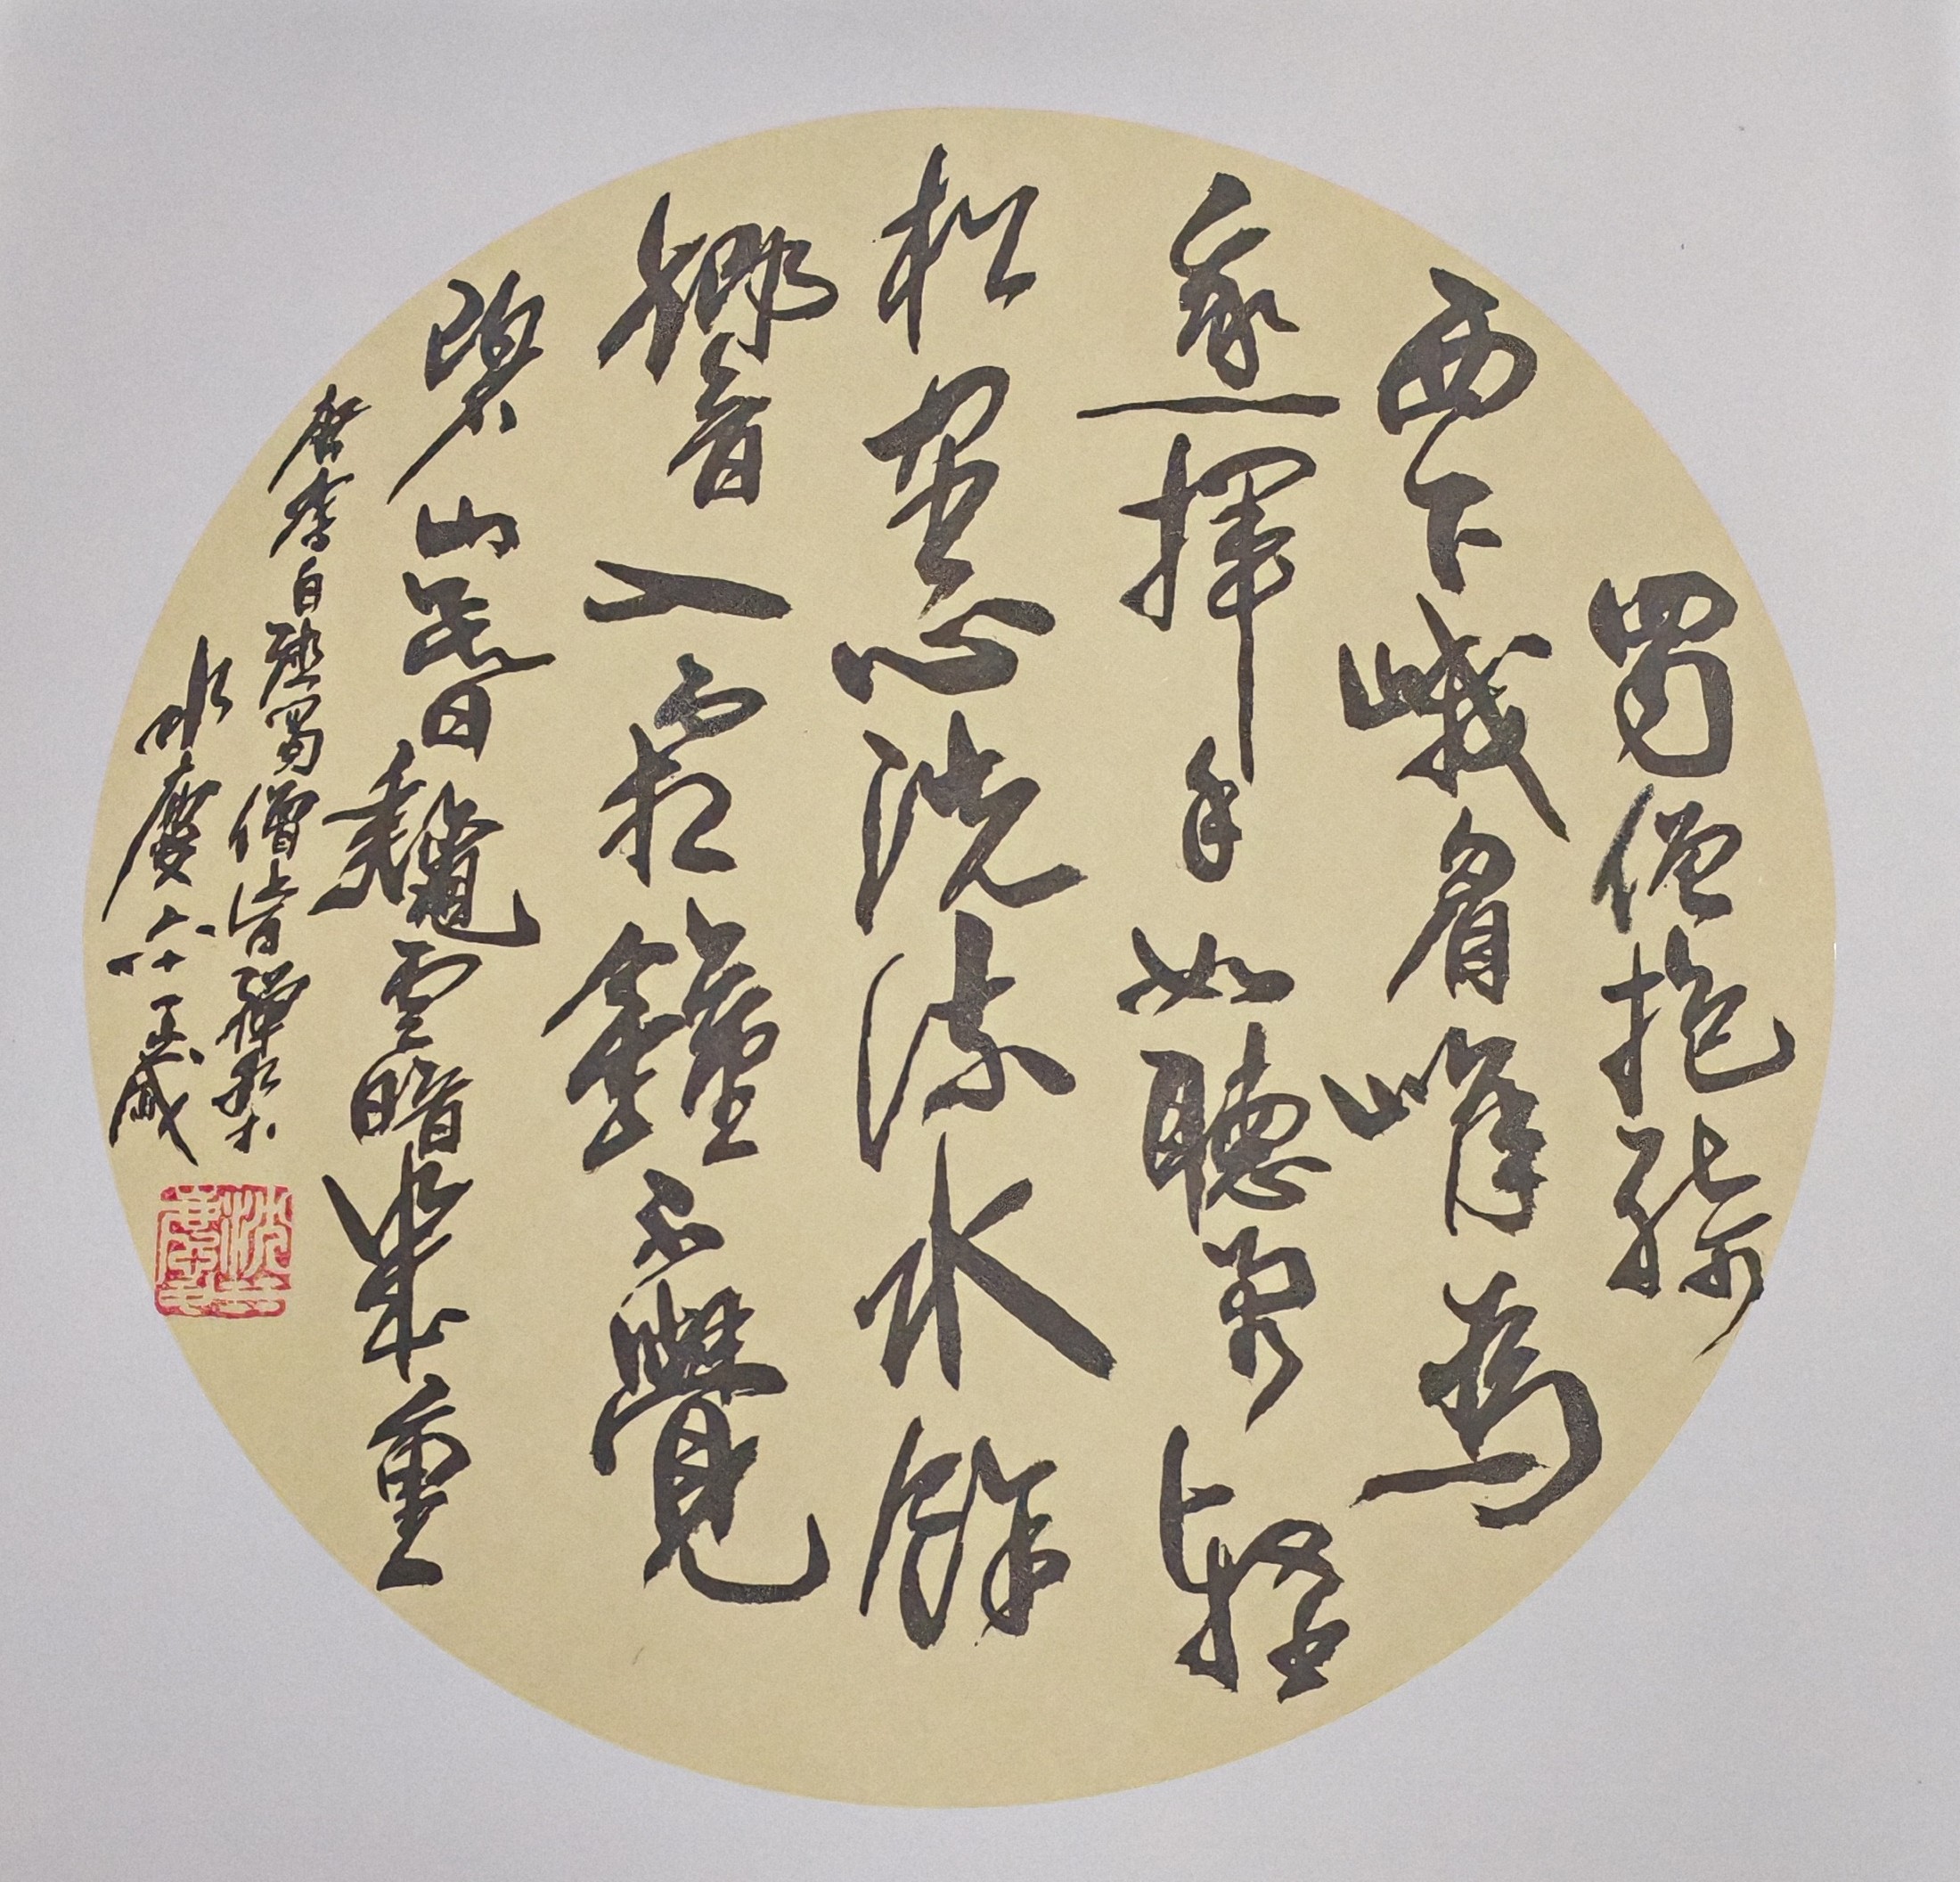 蜀僧抱綺
西下峨眉峰為
我一揮手如聽萬壑
松客心洗流水餘
響入霜鐘不覺
碧山暮龝雲暗幾重
唐李白聽蜀僧彈琴
六十五歲